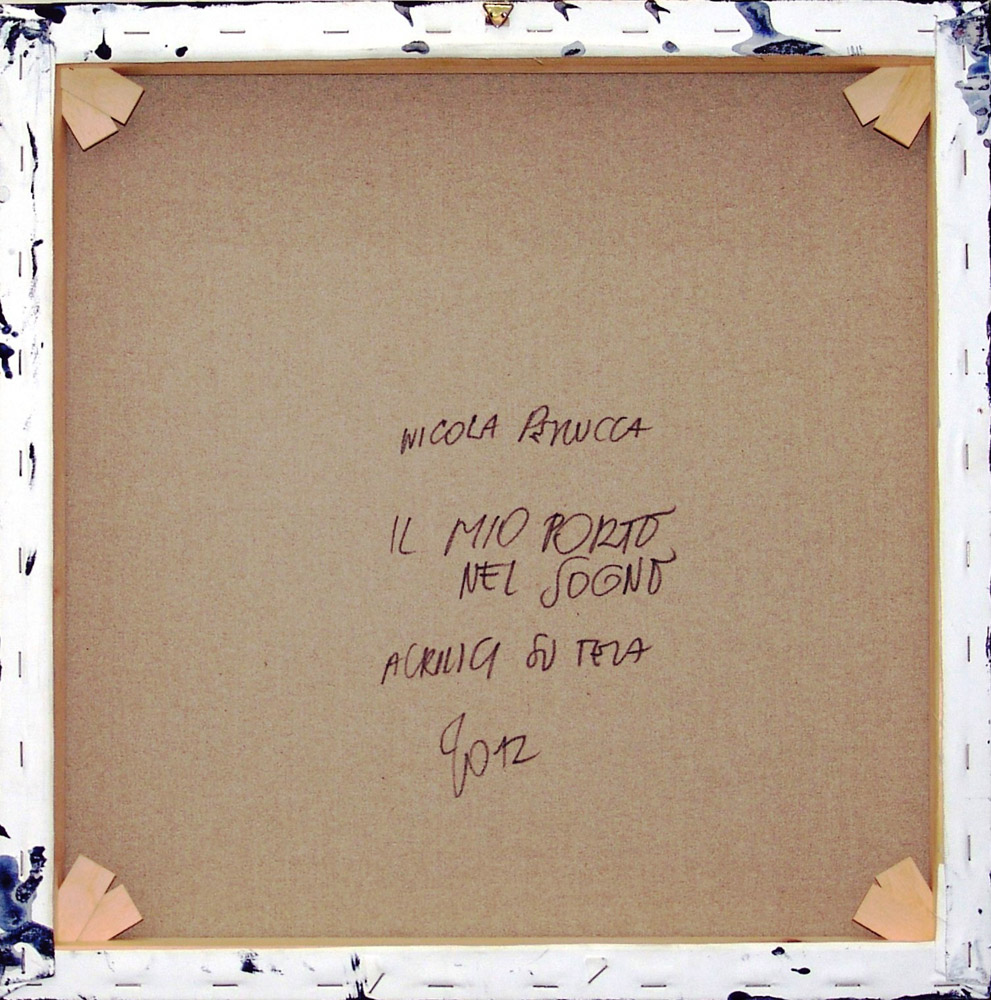 NICOLA PERUCCA
IL MIO PORTO
NEL SOGNO
ACRILICI SU TELA
2012